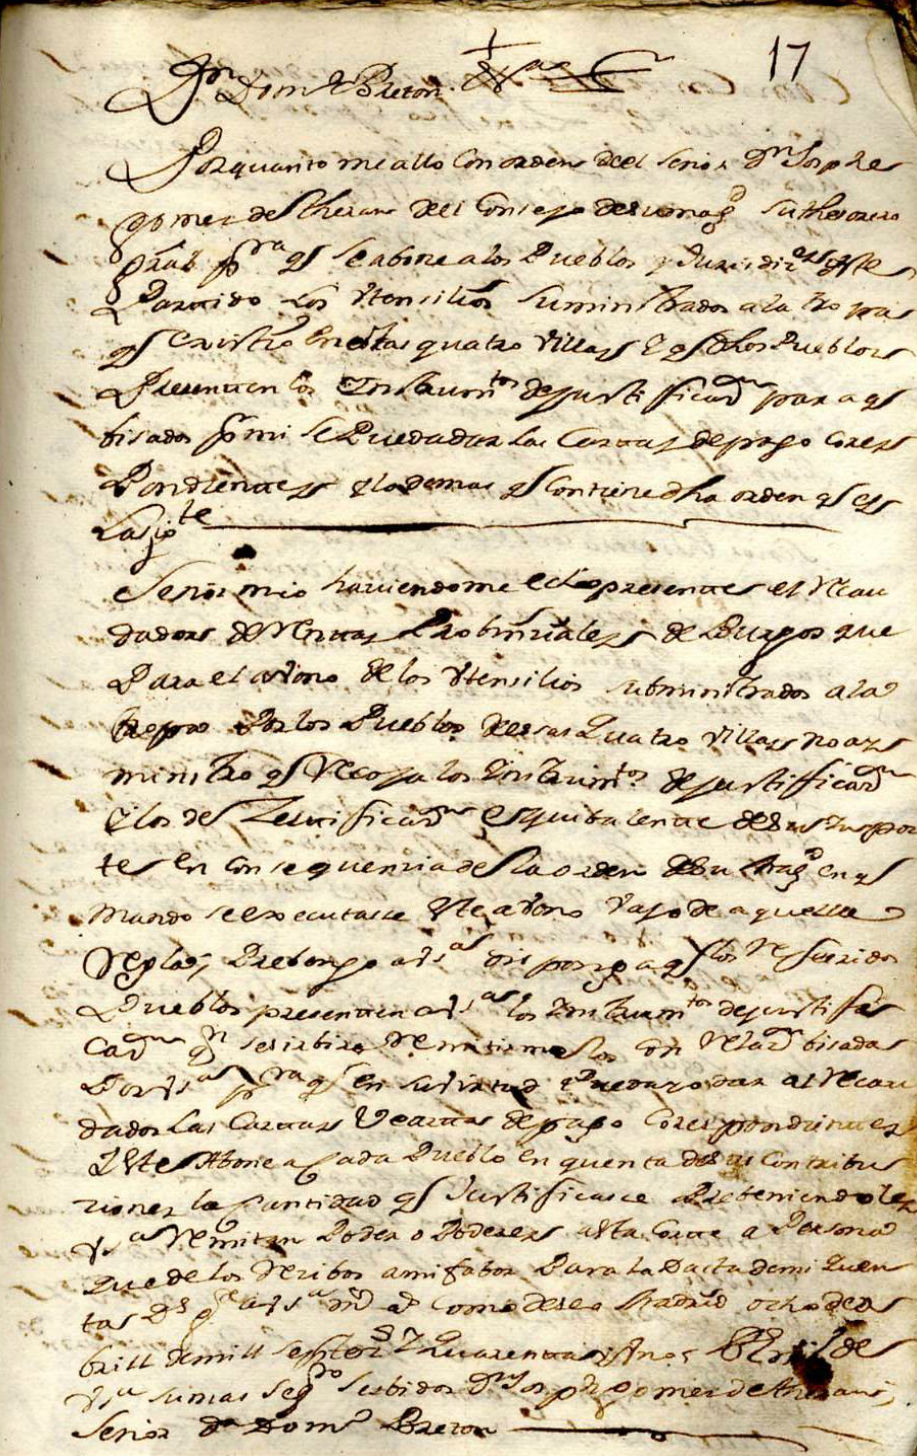 17
Dn Domo Breton
Por quanto me allo Con orden del señor Dn Joseph
Gomez de Theran del Consejo de su magd su thesorero
Gral pra qe se abone a los Pueblos y Jurisdizes deste
Partido los Utensilios suministrados a la tropa
qe en estas quatro Villas y qe dhos Pueblos
Presenten los Instrumtos de justificacon para qe
bisados pr mi se Puedan dar las Cartas de pago Corres
Pondientes y lo demas qe Contiene dha orden qe es
La sigte
Señor mio haviendome echo presente el Recau
dador de Rentas Probinciales de Burgos que
Para el abono de los Utensilios subministrados a la
tropa Por los Pueblos de esas Quatro Villas no ay
ministro qe Recoja los Instrumtos de justifficacon
y los de Zertificacon Esquibalente de sus Impor
tes en Consequenzia de la orden de su Magd en qe
mando se executasse este abono bajo de aquella
Regla Prebengo a Vs disponga qe los Referidos
Pueblos presenten a Vs los Instrumtos de justifi
cacon qn se sirbira Remitirmelos con Relacon bisadas
Por Vs pra qe en su virtud Puedan dar al Recau
dador Las Cartas de pago Correspondientes
y este Abone a Cada Pueblo en quenta de sus Contribu
ziones la Cantidad qe Justificasse Prebeniendoles
Vs Remitan Poder o Poderes a esta Corte a Persona
que de los Recibos a mi fabor Para la Data de mis Quen
tas Ds ge a Vs ms as Como deseo Madrid ocho de A
brill de mill settezos y Quarenta años BLM de
Vs su mas segro serbidor Dn Joseph Gomez de theran
Señor Dn Domo Breton